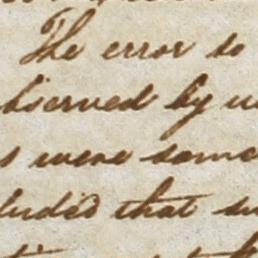 The error to
bserved by u
s were some
luded that su